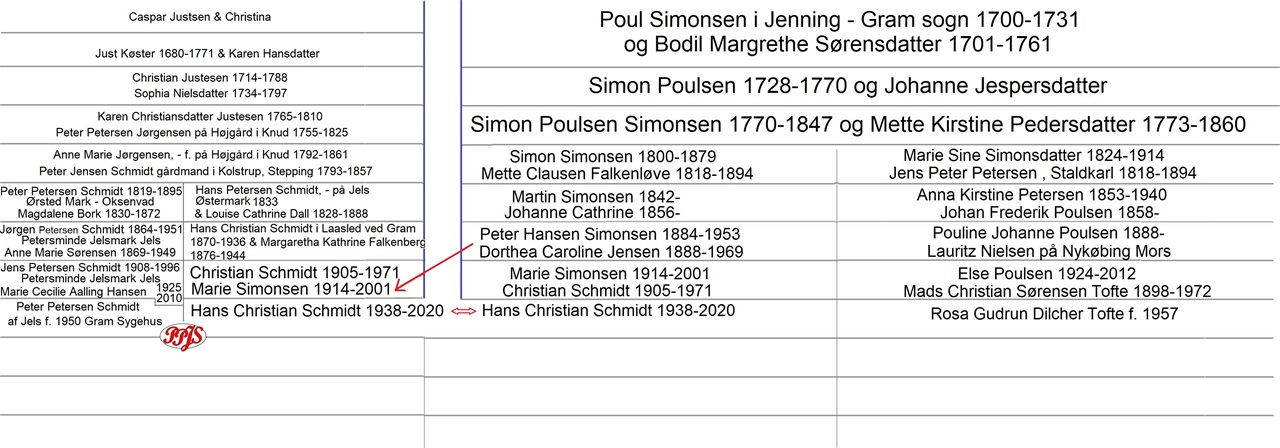 Caspar Justsen & Christina
Just Køster 1680-1771 & Karen Hansdatter
Christian Justesen 1714-1788
Sophia Nielsdatter 1734-1797
Karen Christiansdatter Justesen 1765-1810
Peter Petersen Jørgensen på Højgård i Knud 1755-1825
Anne Marie Jørgensen, - f. på Højgård i Knud 1792-1861
Peter Jensen Schmidt gårdmand i Kolstrup, Stepping 1793-1857
Peter Petersen Schmidt 1819-1895
Ørsted Mark - Oksenvad
Magdalene Bork 1830-1872
Hans Petersen Schmidt, - på Jels
Østermark 1833
& Louise Cathrine Dall 1828-1888
Jørgen Petersen Schmidt 1864-1951
Petersminde Jelsmark Jels
Anne Marie Sørensen 1869-1949
Hans Christian Schmidt i Laasled ved Gram
1870-1936 & Margaretha Kathrine Falkenberg
1876-1944
Jens Petersen Schmidt 1908-1996
Petersminde Jelsmark Jels
Marie Cecilie Aalling Hansen 1925
2010
Christian Schmidt 1905-1971
Marie Simonsen 1914-2001
Peter Petersen Schmidt
af Jels f. 1950 Gram Sygehus
Hans Christian Schmidt 1938-2020
PPJS
Poul Simonsen i Jenning - Gram sogn 1700-1731
og Bodil Margrethe Sørensdatter 1701-1761
Simon Poulsen 1728-1770 og Johanne Jespersdatter
Simon Poulsen Simonsen 1770-1847 og Mette Kirstine Pedersdatter 1773-1860
Simon Simonsen 1800-1879
Mette Clausen Falkenløve 1818-1894
Marie Sine Simonsdatter 1824-1914
Jens Peter Petersen , Staldkarl 1818-1894
Martin Simonsen 1842-
Johanne Cathrine 1856-
Anna Kirstine Petersen 1853-1940
Johan Frederik Poulsen 1858-
Peter Hansen Simonsen 1884-1953
Dorthea Caroline Jensen 1888-1969
Pouline Johanne Poulsen 1888-
Lauritz Nielsen på Nykøbing Mors
Marie Simonsen 1914-2001
Christian Schmidt 1905-1971
Else Poulsen 1924-2012
Mads Christian Sørensen Tofte 1898-1972
Hans Christian Schmidt 1938-2020
Rosa Gudrun Dilcher Tofte f. 1957